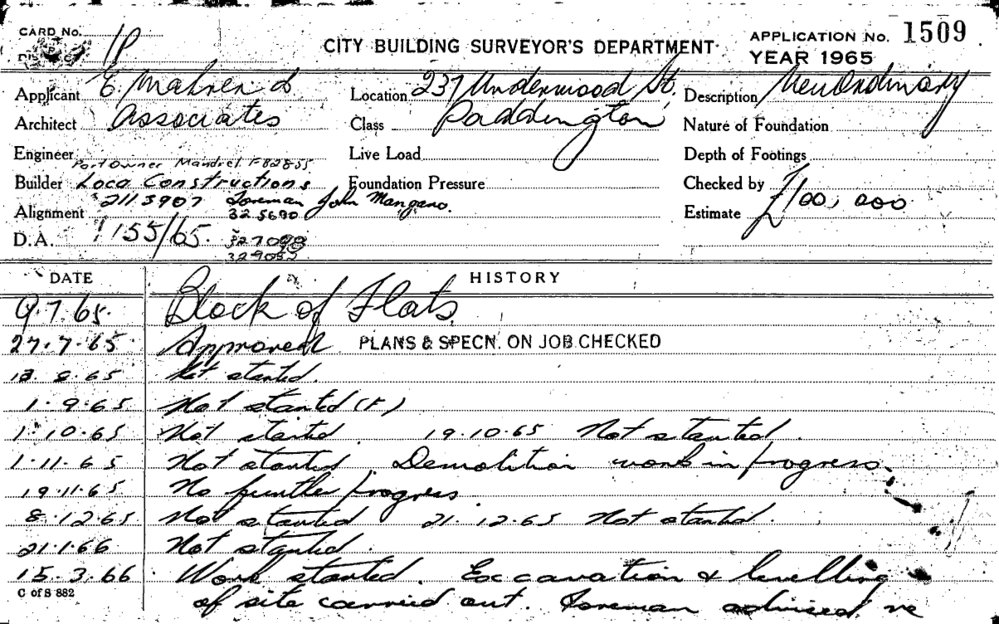 CARD No. 1P
CITY BUILDING SURVEYOR'S DEPARTMENT
APPLICATION No. 1509
YEAR 1965
Applicant E. &
Location 237 Underwood St,
Description New Ordinary
Architect Associates
Class Paddington
Nature of Foundation
Engineer
Live Load
Depth of Footings
Owner
Builder Loca Constructions
Foundation Pressure
Checked by
2113907 Foreman John Mangano.
Alignment 325680
Estimate £100,000
D.A. 1155/65.
DATE HISTORY
9.7.65. Block of Flats.
27.7.65 Approved PLANS & SPECN. ON JOB CHECKED
Not started.
1.9.65 Not started (F)
1.10.65 Not started. 19.10.65 Not started.
1.11.65 Not started. Demolition work in progress.
19.11.65 No further progress
8.12.65 Not started 21.12.65 Not started.
21.1.66 Not started.
15.3.66 Work started. Excavation & levelling
C of S 882
of site carried out. Foreman advised re